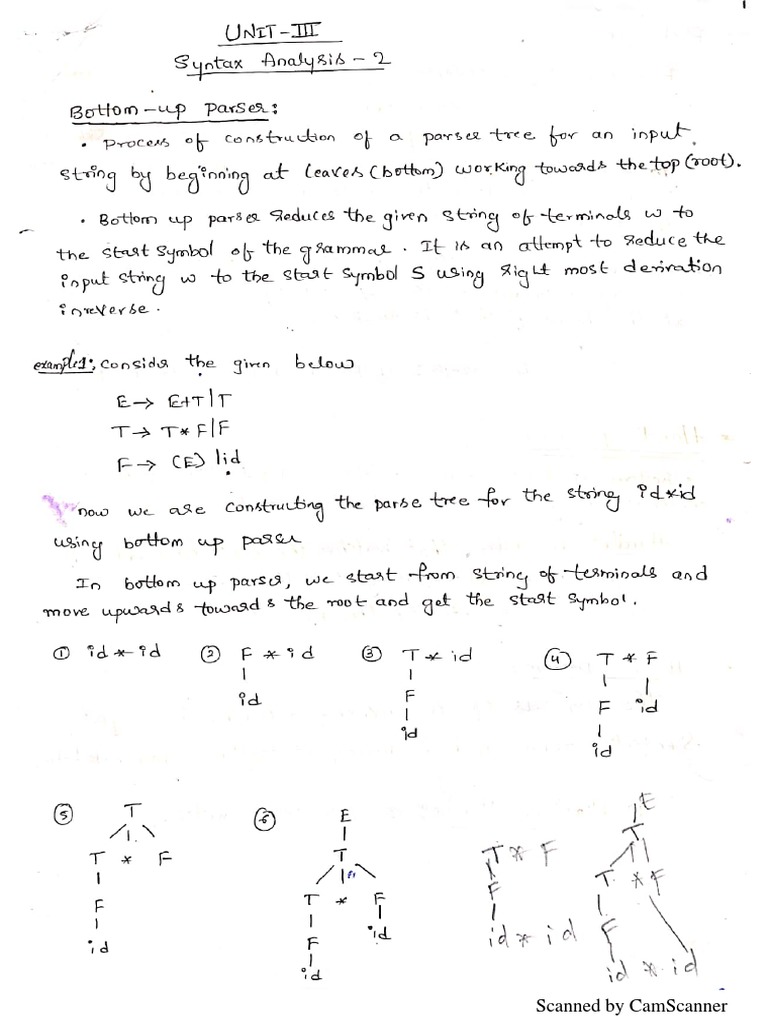 1
UNIT-III
Syntax Analysis - 2
Bottom-up parser:
• Process of construction of a parser tree for an input
string by beginning at leaves (bottom) working towards the top (root).
• Bottom up parser reduces the given string of terminals w to
the start symbol of the grammar. It is an attempt to reduce the
input string w to the start symbol S using right most derivation
in reverse.
example1: consider the given below
E → E+T|T
T → T*F|F
F → (E)|id
now we are constructing the parse tree for the string id*id
using bottom up parser
In bottom up parser, we start from string of terminals and
move upwards towards the root and get the start symbol.
① id * id ② F * id ③ T * id ④ T * F
id F F id
id id
⑤ T ⑥ E E
T * F T T * F T
F T * F F T * F
id F id id * id F
id id * id
Scanned by CamScanner